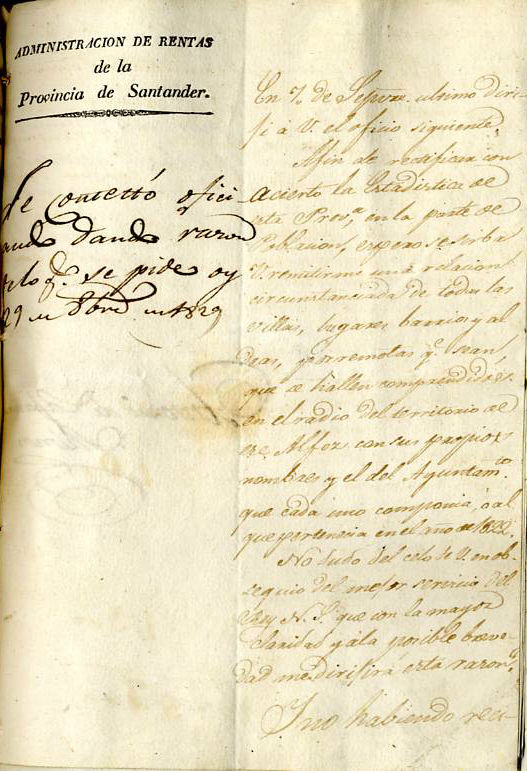 ADMINISTRACION DE RENTAS
de la
Provincia de Santander.
Se contestó ofici
ando dando razon
de lo q.e se pide oy
29 de 8bre de 1829
En 7,, de Sepre. ultimo diri-
fi á V. el oficio siguiente,
Afin de rectificar con
acierto la Estadistica de
esta Prov.a en la parte de
Poblacion, espero se sirba
V. remitirme una relacion
circunstanciada de todas las
villas, lugares, barrios y al
deas, por remotas q.e sean
que se hallen comprendidas
en el radio del territorio de
ese Alfoz con sus propios
nombres y el del Ayuntam.to
que cada uno componia, ó al
que pertenecia en el año de 1822.
No dudo del celo de V. en ob-
sequio del mejor servicio del
Rey N. S.r que con la mayor
claridad y á la posible breve-
dad me dirifira esta razon.
I no habiendo reci-